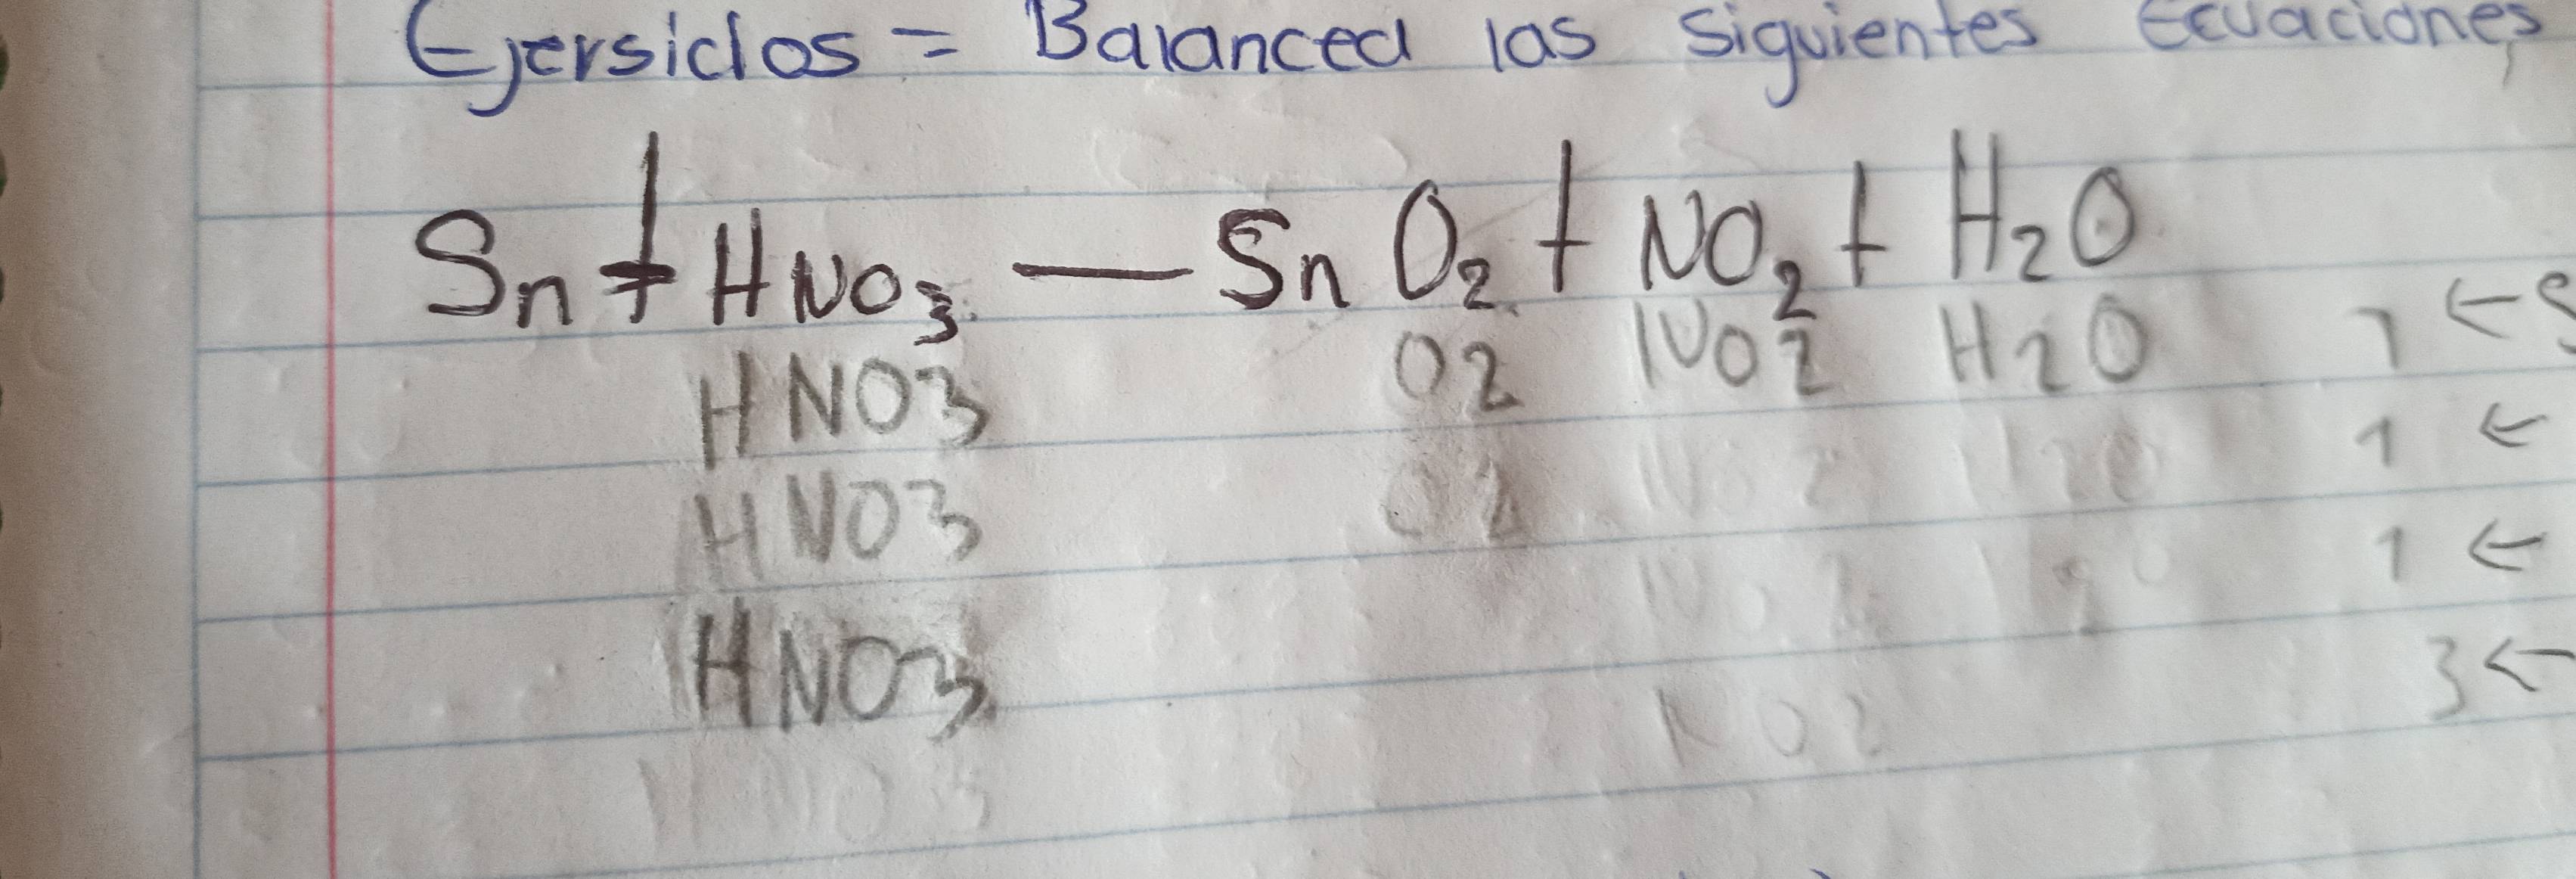 Ejersicios = Balanced las siguientes Ecuaciones
Sn + HNO3 — SnO2 + NO2 + H2O
HNO3 O2 NO2 H2O 1 ←
HNO3 O2 NO2 H2O 1 ←
HNO3 NO2 1 ←
NO2 3 ←
HNO3